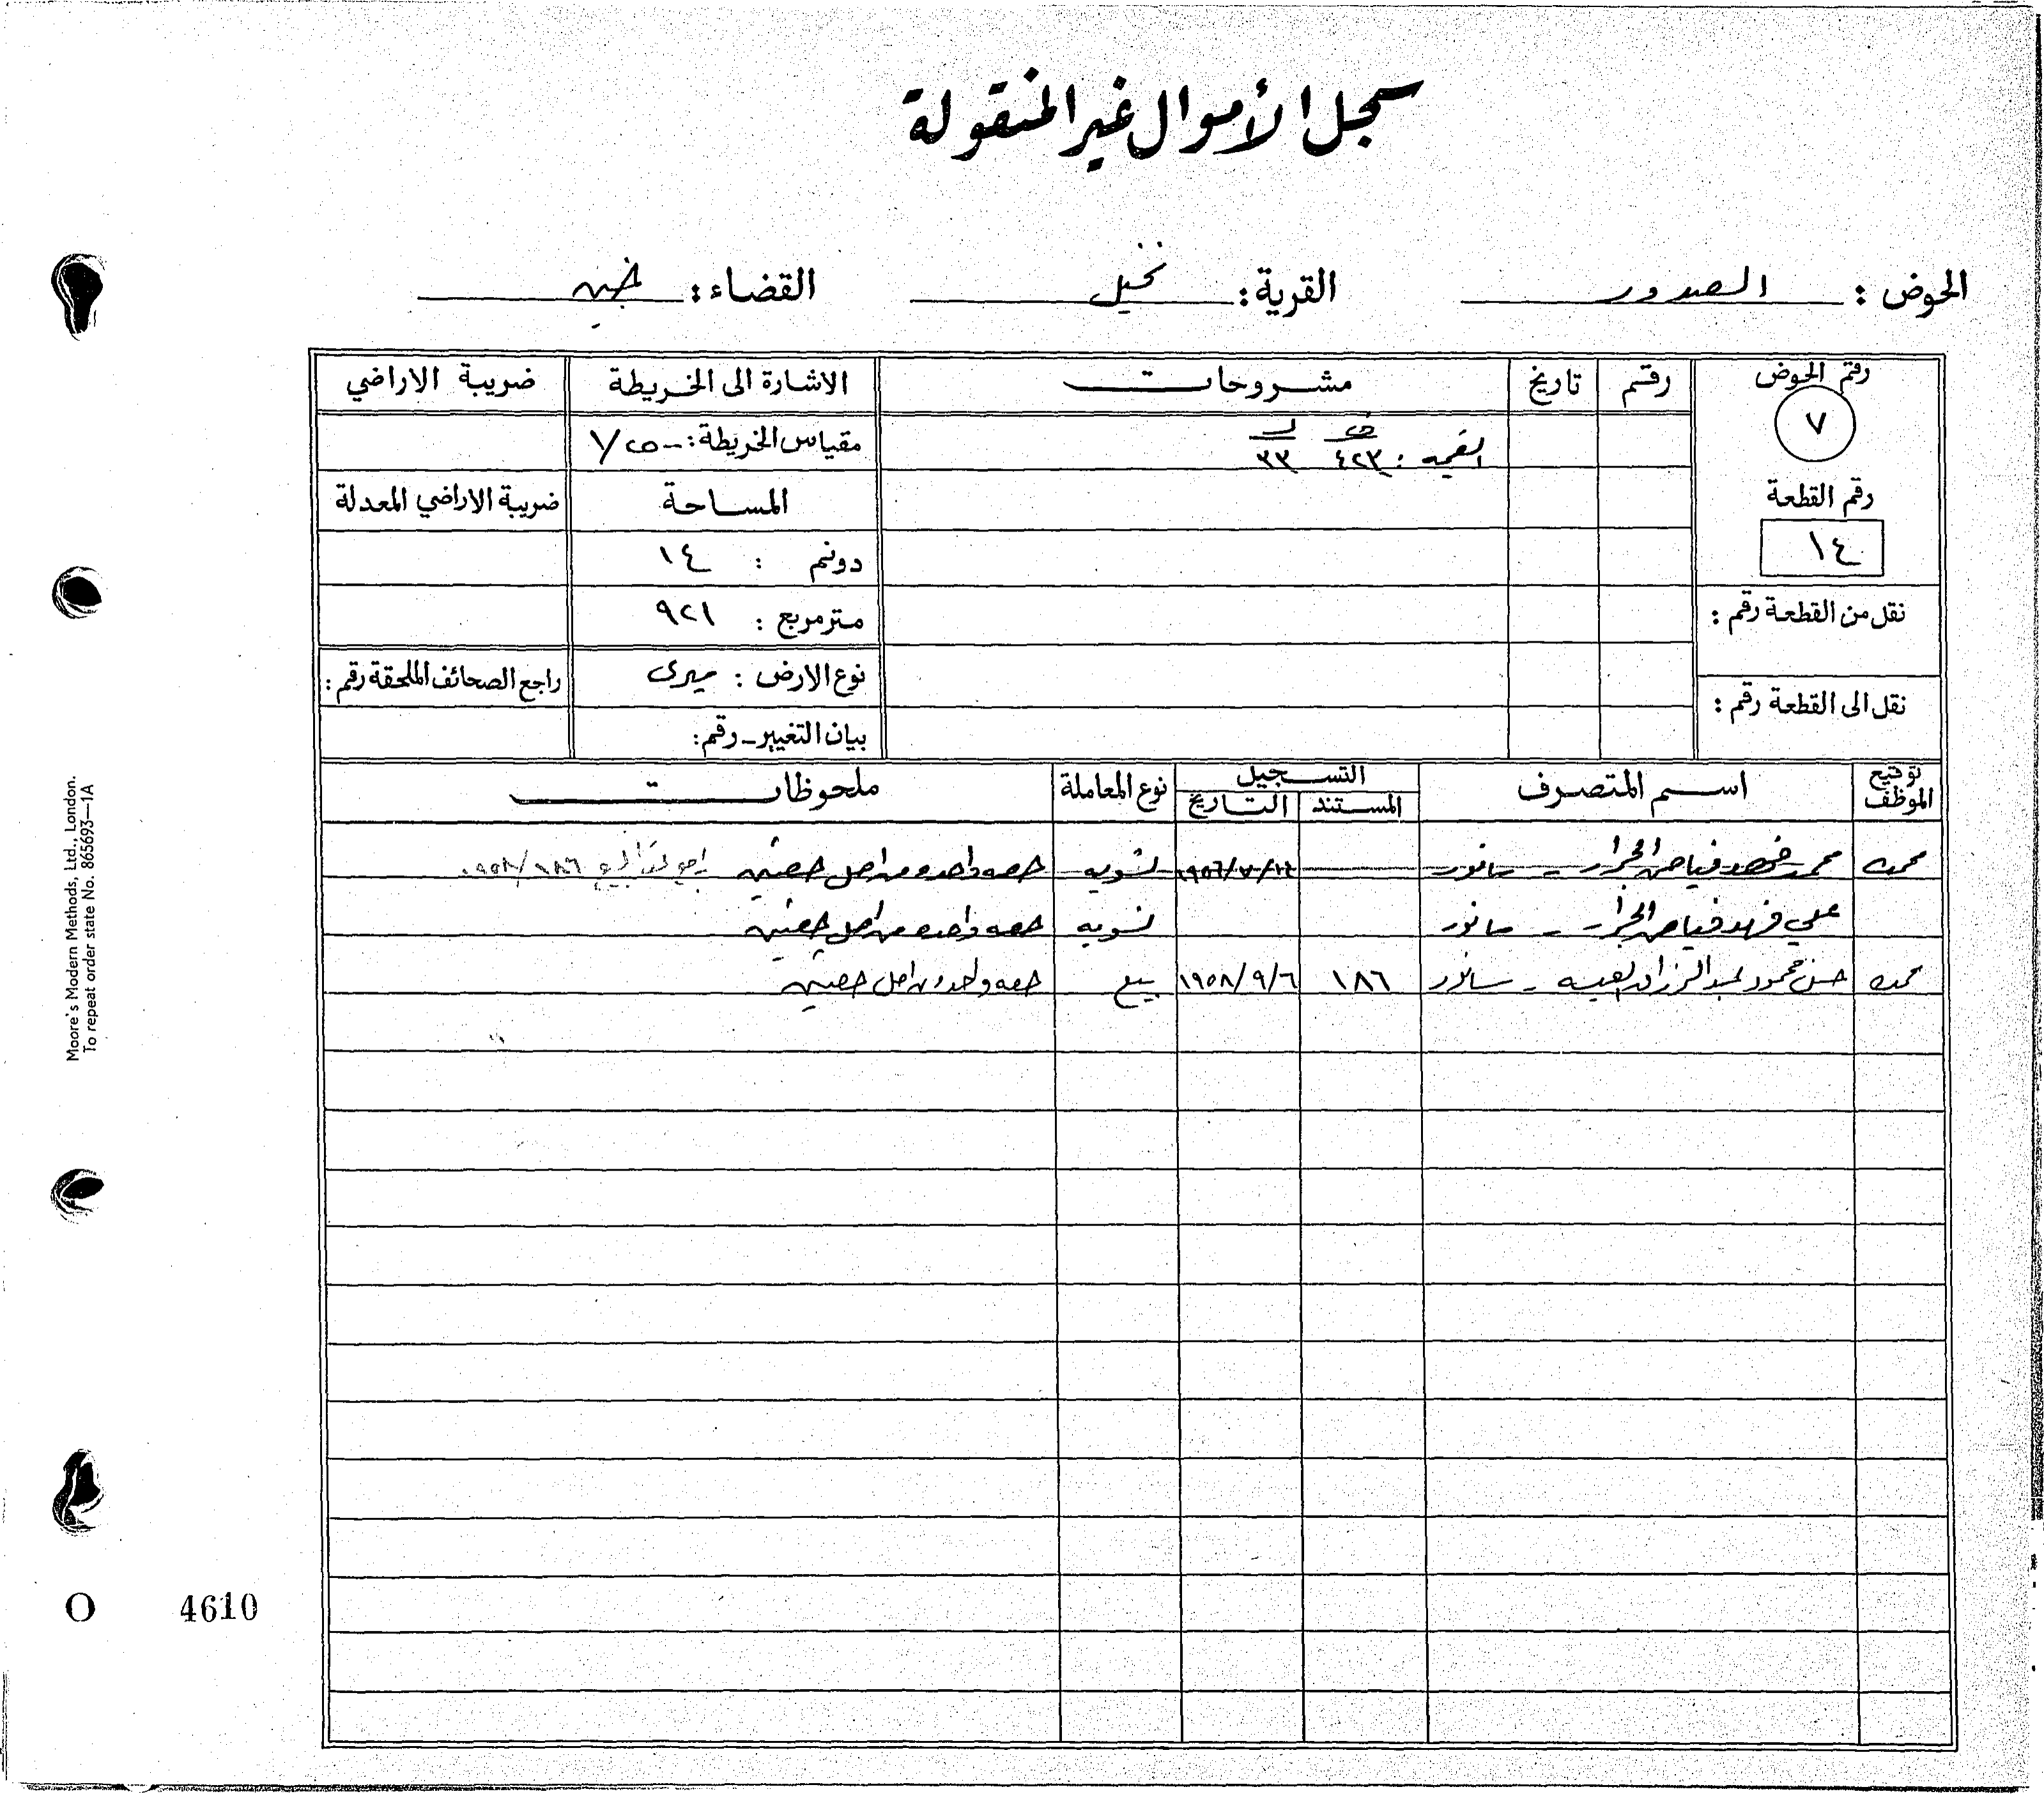 سجل الأموال غير المنقولة
الحوض : الصدور القرية : نخيل القضاء : جنين
رقم الحوض رقم تاريخ مشروحات الاشارة الى الخريطة ضريبة الاراضي
٧ القيمه : ف ٤٢٣ ل ٣٣ مقياس الخريطة :
رقم القطعة المساحة ضريبة الاراضي المعدلة
١٤ دونم : ١٤
نقل من القطعة رقم : متر مربع : ٩٢١
نوع الارض : ميرى راجع الصحائف الملحقة رقم :
نقل الى القطعة رقم : بيان التغيير - رقم :
توقيع الموظف اسم المتصرف التسجيل نوع المعاملة ملحوظات
المستند التاريخ
محمد فهد فياض الجرار - سانور ١٩٥٦/٧/٢٤ تسويه حصه واحده من اصل حصتين ١٩٥٨/١٨٦
علي فهد فياض الجرار - سانور تسويه حصه واحده من اصل حصتين
حسن محمود عبد الرزاق العيسه - سانور ١٨٦ ١٩٥٨/٩/٦ بيع حصه واحده من اصل حصتين
Moore's Modern Methods, Ltd., London.
To repeat order state No. 865693—1A
O 4610